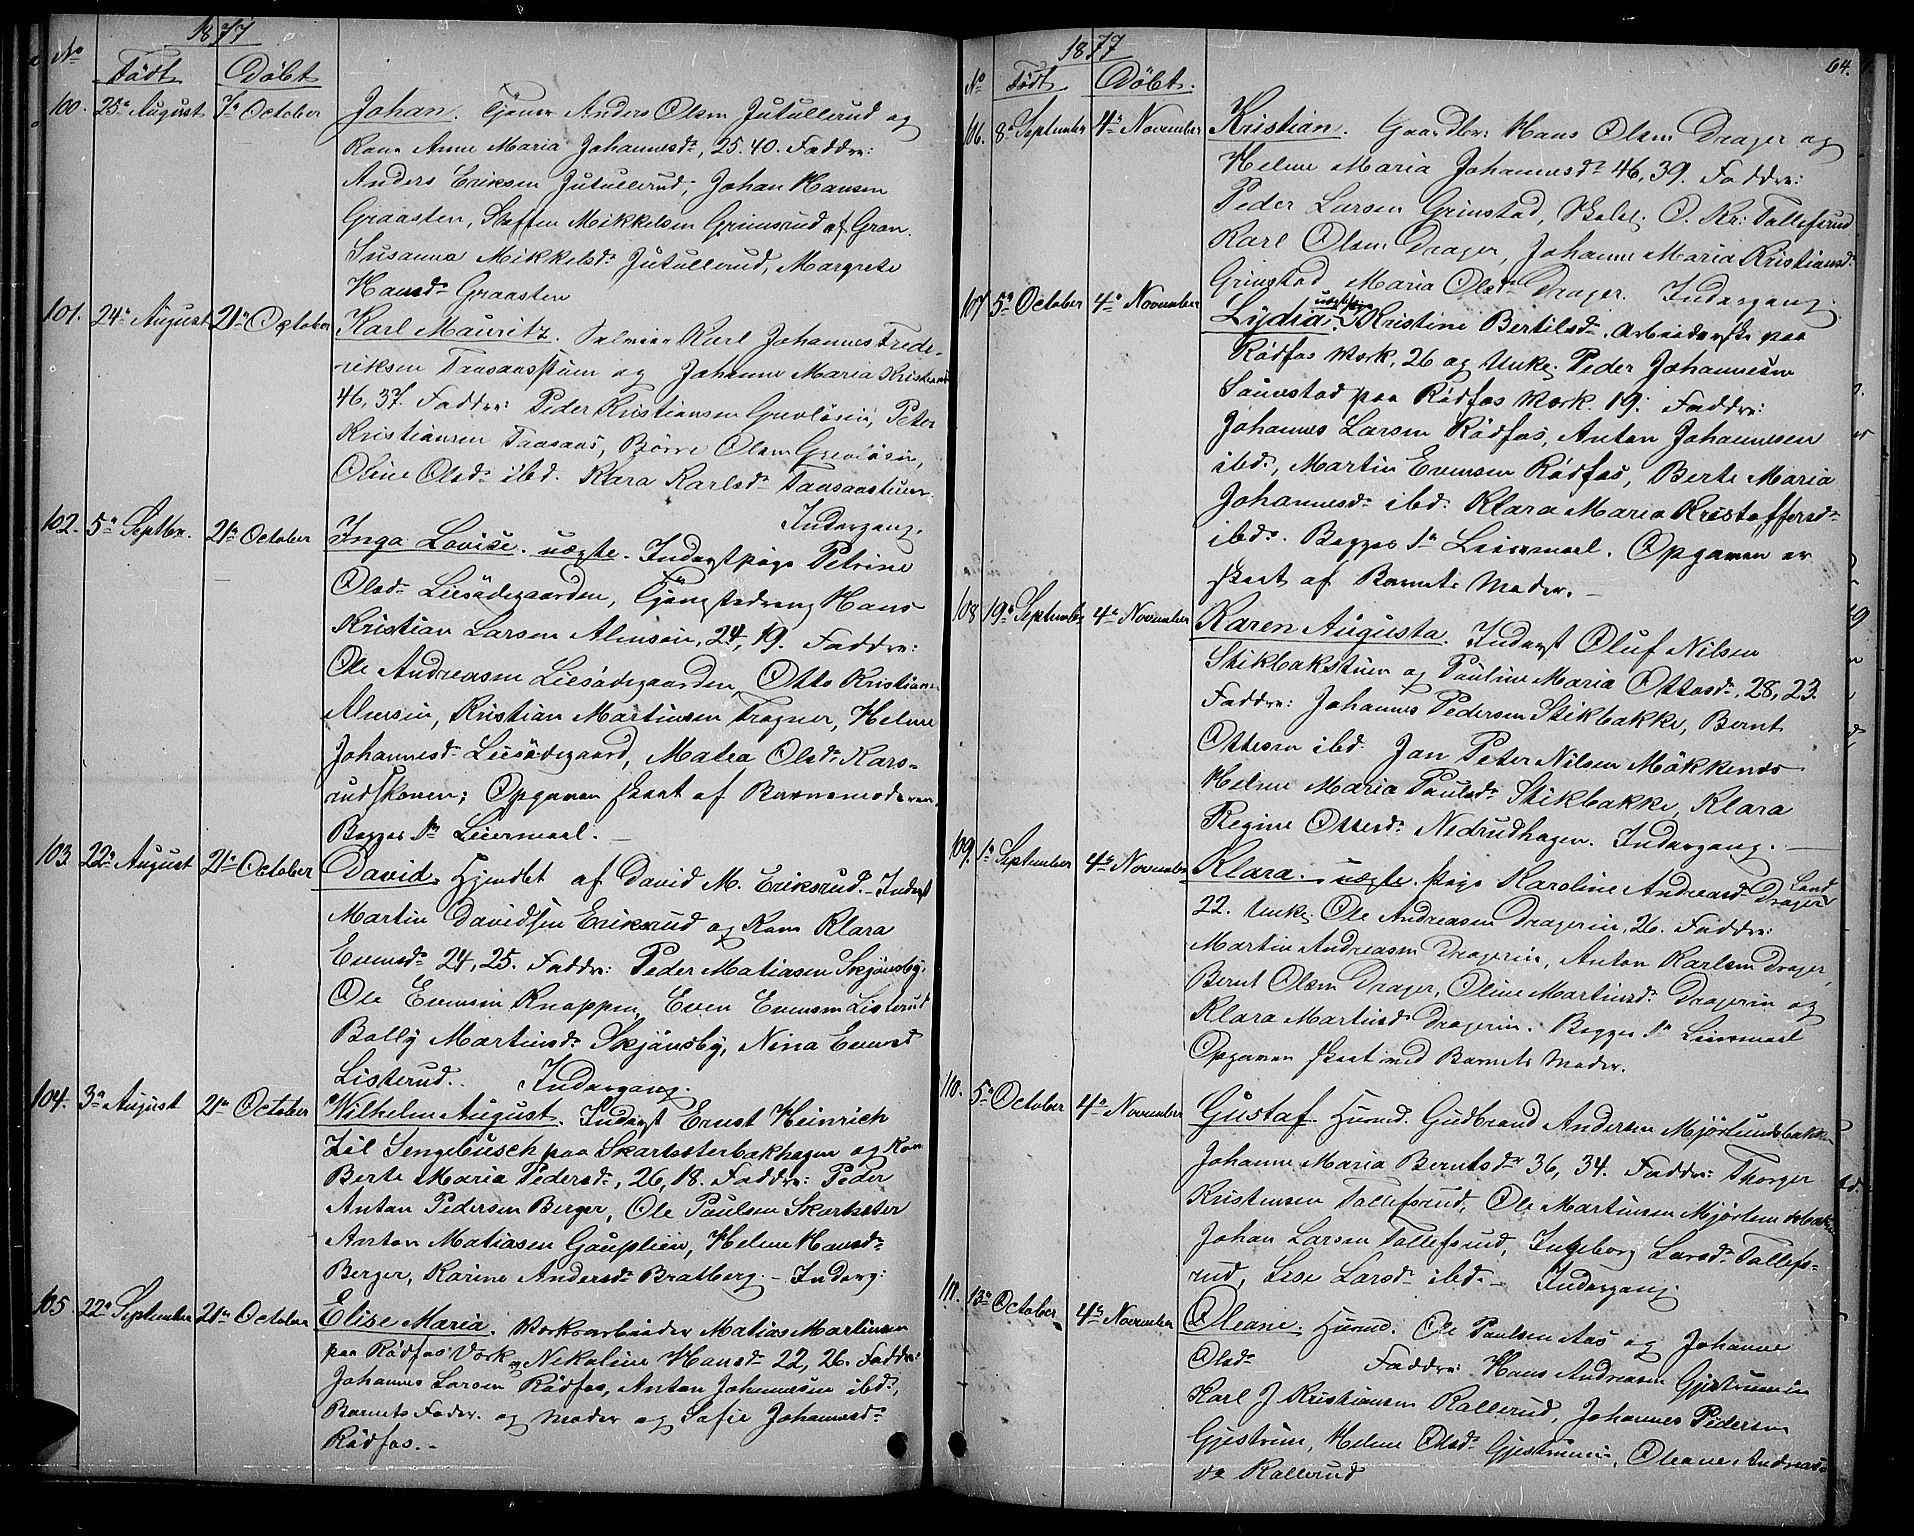 1877
No Födt Döbt
100. 25de August 7de October Johan. Tjener Anders Olsen Jutullerud og
Kone Anne Maria Johannesdr, 25.40. Faddre:
Anders Eriksen Jutullerud, Johan Hansen
Graasten, Steffen Mikkelsen Grimsrud af Gran.
Susanna Mikkelsdr Jutullerud, Margrete
Hansdr Graasten
101. 24de August 21de October Karl Mauritz. Karl Johannes Frede-
riksen Taasaasstuen og Johanne Maria Kristiansd
46, 37. Faddre: Peder Kristiansen Grevlösen, Peter
Kristiansen Taasaas, Börre Olsen Grevlösen,
Oline Olsdr ibd. Klara Karlsdr Taasaastuen.
Indergang.
102. 5de Septbr. 21de October Inga Lovise. uægte. Inderstpige Petrine
Olsdr Liesödegaarden, Tjenestedreng Hans
Kristian Larsen Almseie, 24, 19. Faddre:
Ole Andreasen Liesödegaarden, Otto Kristiansen
Almseie, Kristian Martinsen Tragner, Helene
Johannesdr Liesödegaard, Matea Olsdr Kars-
rudskoven; Opgaven skeet af Barnemoderen.
Begges 1ste Leiermaal. —
103. 22de August 21de October David. Hjemdöbt af David M. Eriksrud. – Inderst
Martin Davidsen Eriksrud og Kone Klara
Evensdr 24, 25. Faddre: Peder Matiasen Skjönsby,
Ole Evensen Knappen, Even Evensen Listerud
Bolly Martinsdr Skjönsby, Nina Evensd
Listerud. Indergang.
104. 3de August 21de October Wilhelm August. Inderst Ernst Heinrich
Sengebusch paa Skartesterbakhagen og Kone
Berte Maria Pedersdr, 26, 18. Faddre: Peder
Anton Pedersen Berger, Ole Paulsen Skartester
Anton Matiasen Gauplien, Helene Hansdr
Berger, Karine Andersdr Bratberg. – Inderg:
105. 22de September 21de October Elise Maria. Værksarbeider Matias Martinsen
paa Rödfos Værk og Nikoline Hansdr 22, 26. Faddre:
Johannes Larsen Rödfos, Anton Johannesen ibd,
Barnets Fader og Moder og Sofie Johannesdr
Rödfos. –
1877
64.
No Födt Döbt.
106. 8de September 4de November Kristian. Gaardbr: Hans Olsen Drager og
Helene Maria Johannesdr 46, 39. Faddre:
Peder Larsen Grinstad, Skolel. O. Kr: Tollefsrud
Karl Olsen Drager, Johanne Maria Kristiansdr
Grinstad, Maria Olsdr Drager. Indergang.
107 5de October 4de November Lydia, uægte Pige Kristine Bertilsdr. Arbeiderske paa
Rödfos Værk, 26 og Unke. Peder Johannesen
Sönestad paa Rödfos Værk. 19. Faddre:
Johannes Larsen Rödfos, Anton Johannesen
ibd., Martin Evensen Rödfos, Berte Maria
Johannesdr ibd. Klara Maria Kristoffersdr
ibd. Begges 1ste Leiermaal. Opgaven er
skeet af Barnets Moder. –
108 19de September 4de November Karen Augusta. Inderst Oluf Nilsen
Stikbakstuen og Pauline Maria Ottosdr, 28, 23.
Faddre: Johannes Pedersen Stikbakke, Bernt
Ottesen ibd. Jan Peter Nilsen Mökkends
Helene Maria Paulsdr Stikbakke, Klara
Regine Ottesdr Nedrudhagen. Indergang. –
109. 1ste September 4de November Klara. uægte. Pige Karoline Andreasdr Drager Land
22. Unke. Ole Andreasen Dragerie, 26. Faddre:
Martin Andreasen Dragerie, Anton Karlsen Drager,
Bernt Olsen Drager, Oline Martinsdr Dragerie og
Klara Martinsd Drageeie. Begges 1ste Leiermaal
Opgaven skeet ved Barnets Moder.
110. 5de October 4de November Gustaf. Husmd. Gudbrand Andersen Mjörlundsbakken
Johanne Maria Berntsdr 36, 34. Faddre: Thorger
Kristensen Tollefsrud, Ole Martinsen Mjörlundsbakken
Johan Larsen Tollefsrud, Ingeborg Larsdr Tollefs-
rud, Lise Larsdr ibd. – Indergang.
111. 13de October 4de November Oleane. Husmd. Ole Paulsen Aas og Johanne
Olsdr Faddre: Hans Andreasen Gjestrumeie
Karl J Kristiansen Kallerud, Johannes Pedersen
Gjestrum, Helene Olsdr Gjestrumeie, Oleane Andreas-
dr Kallerud